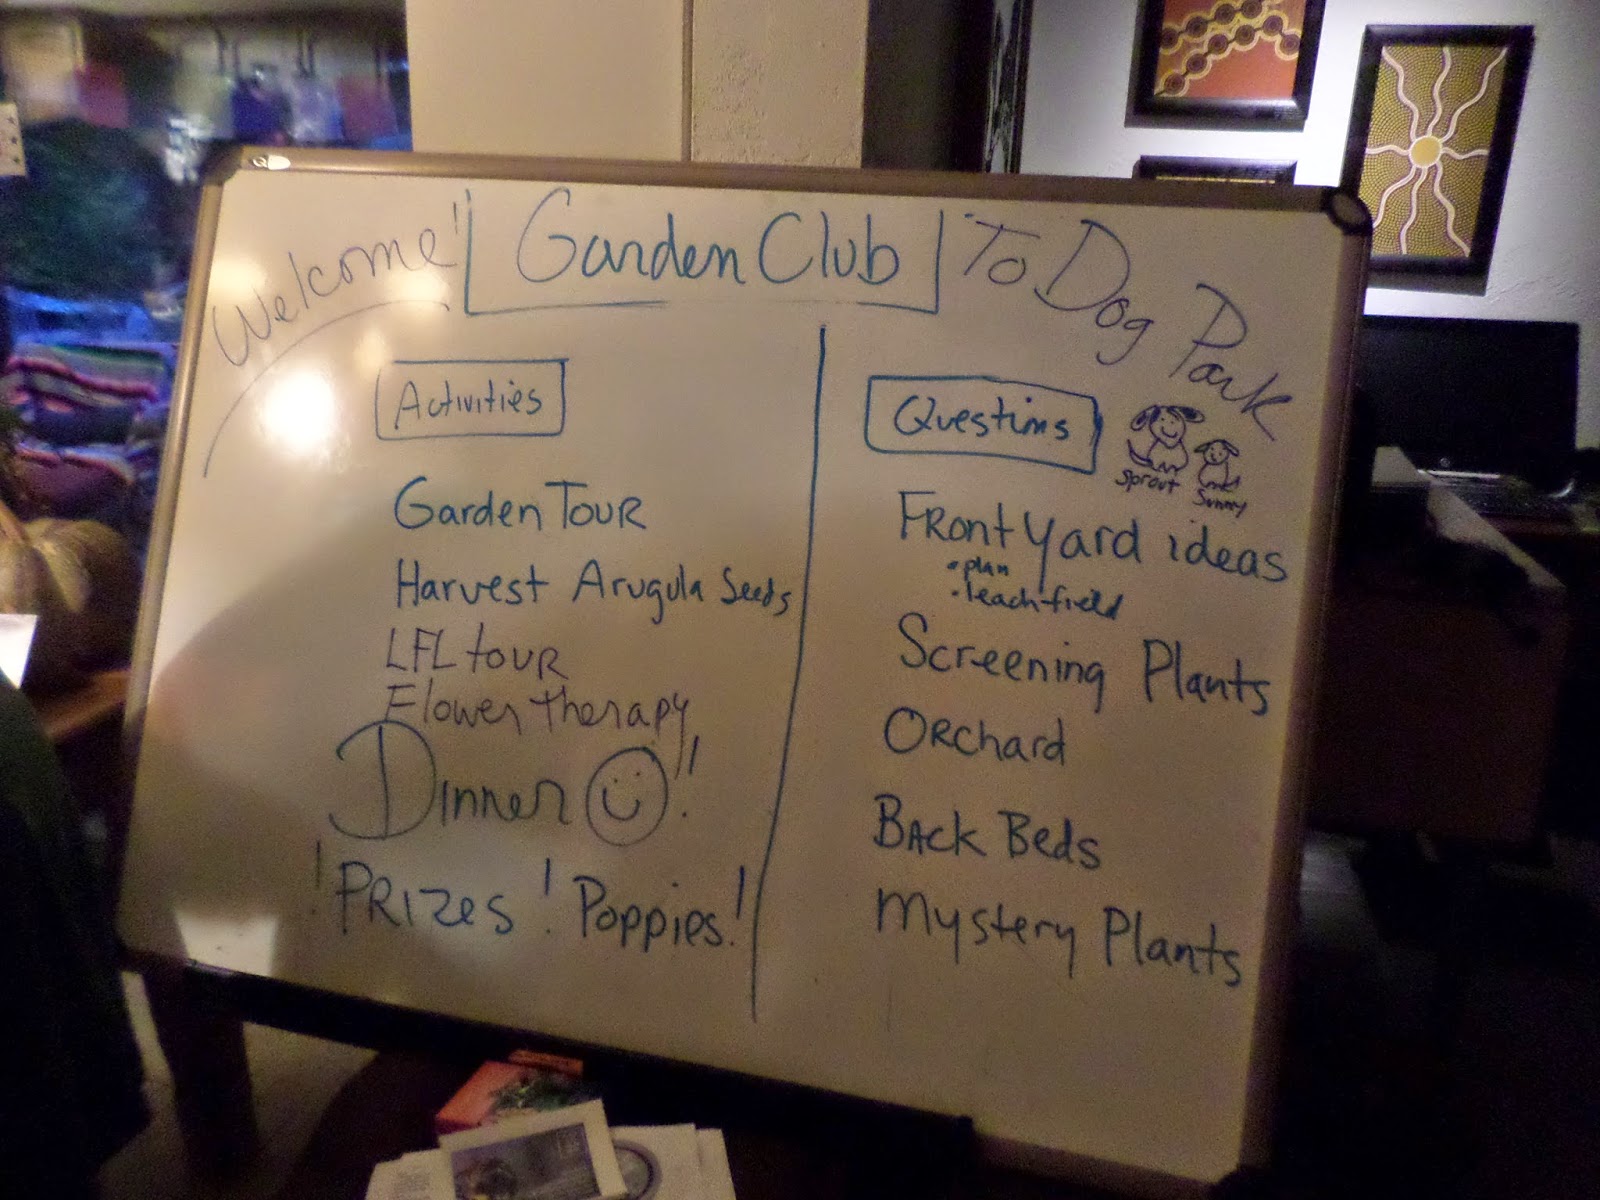 Welcome! Garden Club To Dog Park
Activities
Garden Tour
Harvest Arugula Seeds
LFL tour
Flower therapy
Dinner !!
! PRIZES ! Poppies!
Questions
Sprout
Sunny
Front Yard ideas
• plan
• leach field
Screening Plants
Orchard
Back Beds
Mystery Plants